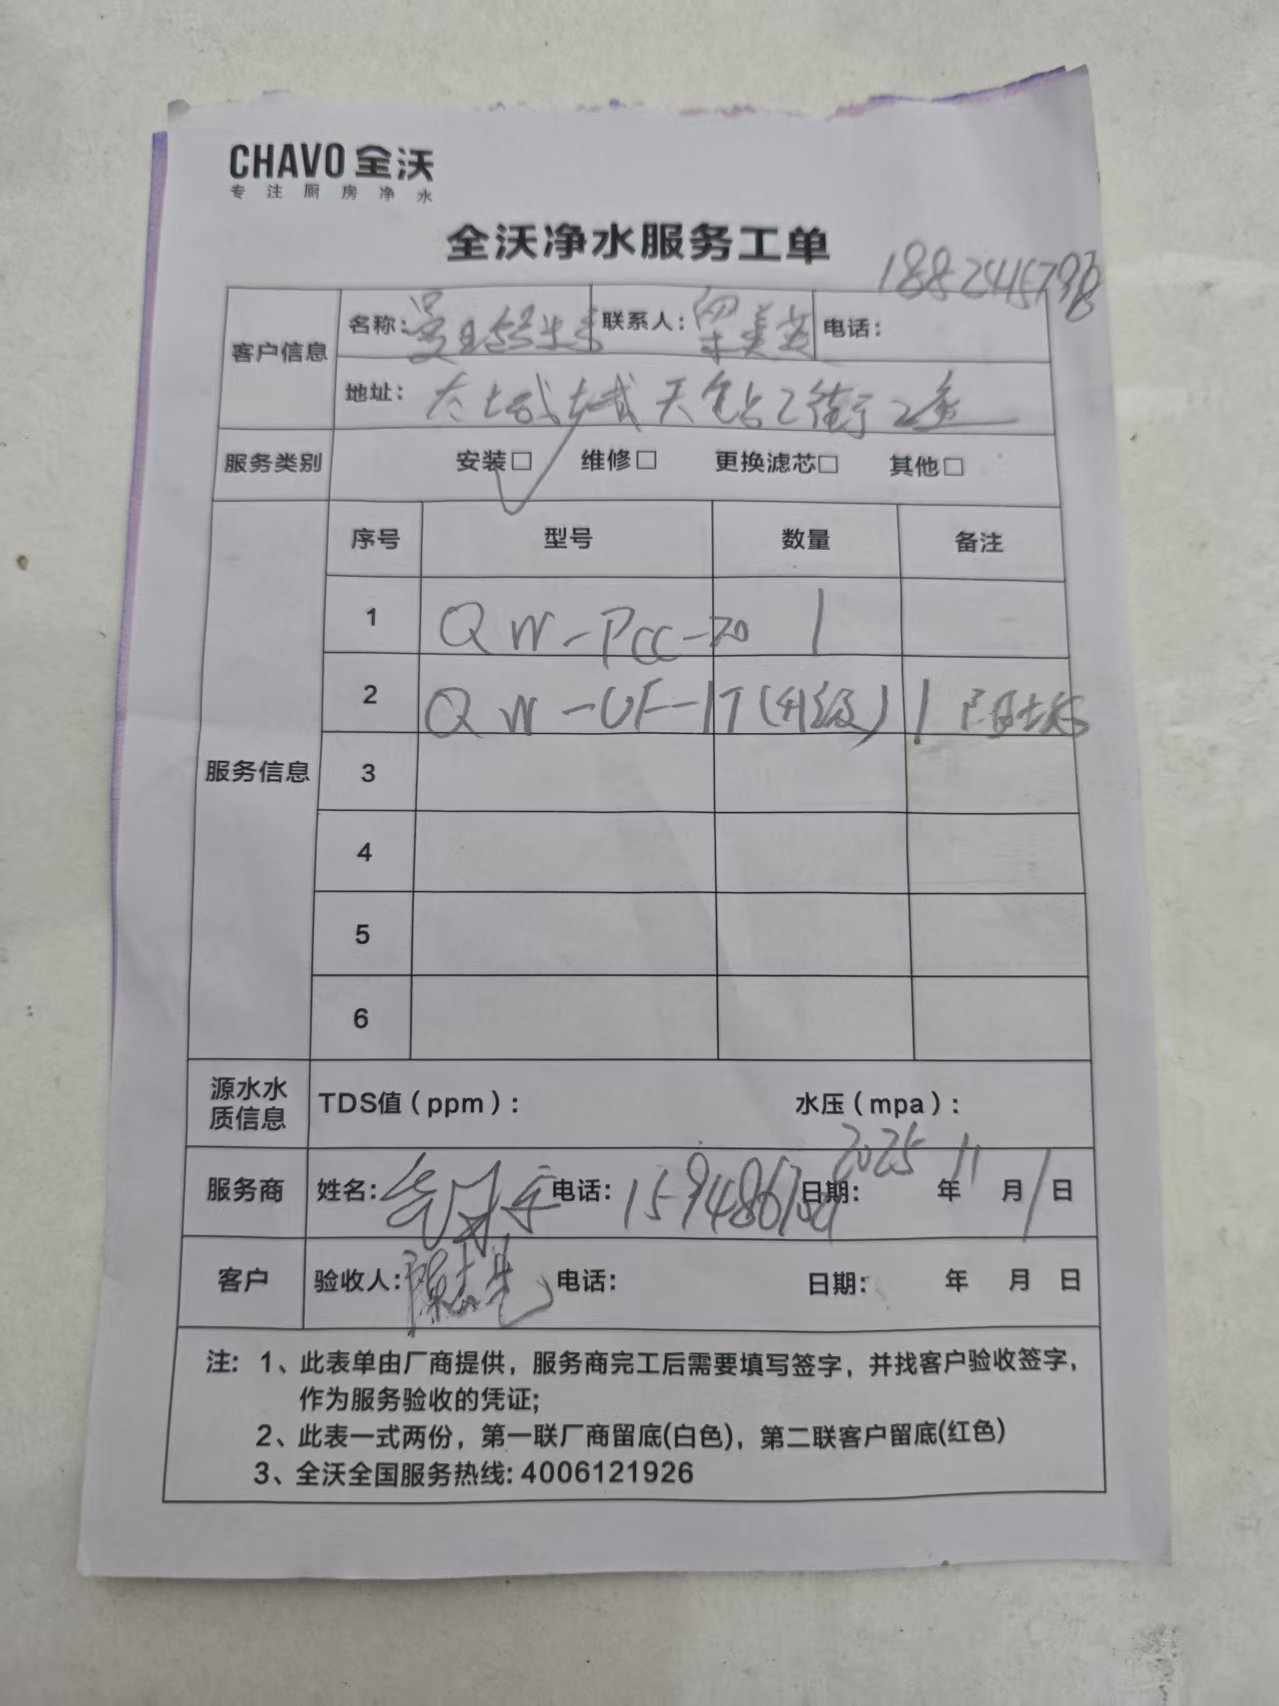 CHAVO 全沃
专注厨房净水
全沃净水服务工单
客户信息
名称: 联系人: 梁美英 电话:
地址: 大城 天 2街 2
服务类别 安装□ ✓ 维修□ 更换滤芯□ 其他□
服务信息
序号 型号 数量 备注
1 QW-PCC-20 1
2 QW-UF-1T(升级) 1
3
4
5
6
源水水质信息 TDS值（ppm）: 水压（mpa）:
服务商 姓名: 电话: 日期: 2025年11月1日
客户 验收人: 电话: 日期: 年 月 日
注: 1、此表单由厂商提供，服务商完工后需要填写签字，并找客户验收签字，
作为服务验收的凭证;
2、此表一式两份，第一联厂商留底(白色)，第二联客户留底(红色)
3、全沃全国服务热线: 4006121926